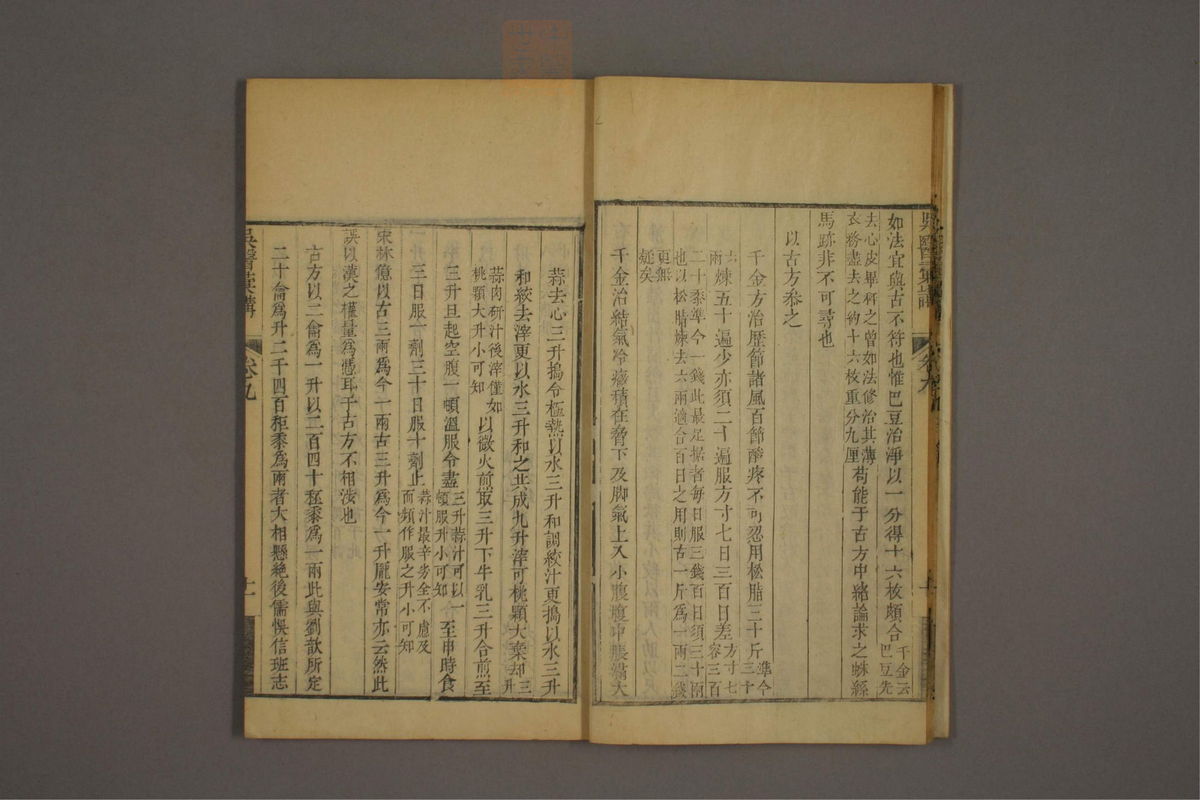 如法宜與古不符也惟巴豆治淨以一分得十六枚頗合千金云巴豆先
去心皮畢秤之曾如法修治其薄衣務盡去之約十六枚重分九厘苟能于古方中緒論求之蛛絲
馬跡非不可尋也
以古方叅之
千金方治歷節諸風百節酸疼不可忍用松脂三十斤準今三十
兩煉五十遍少亦須二十遍服方寸七日三百日差方寸七容三百
二十黍準今一錢此最足據者每日服三錢百日須三十兩也以松脂煉去六兩適合百日之用則古一斤為一兩二錢
更無疑矣
千金治結氣冷癥積在脅下及脚氣上入小腹腹中脹滿大
蒜去心三升搗令極熟以水三升和調絞汁更搗以水三升
和絞去滓更以水三升和之共成九升滓可桃顆大棄却三升
蒜肉硏汁後滓僅如桃顆大升小可知以微火煎取三升下牛乳三升合煎至
三升旦起空腹一頓溫服令盡三升蒜汁可以一頓服升小可知至申時食
三日服一劑三十日服十劑止蒜汁最辛劣全不慮及而頻作服之升小可知
宋林億以古三兩為今一兩古三升為今一升龐安常亦云然此
誤以漢之權量為憑耳于古方不相涉也
古方以二龠為一升以二百四十秬黍為一兩此與劉歆所定
二十龠為升二千四百秬黍為兩者大相懸絶後儒悞信班志
吳醫彙講
卷九